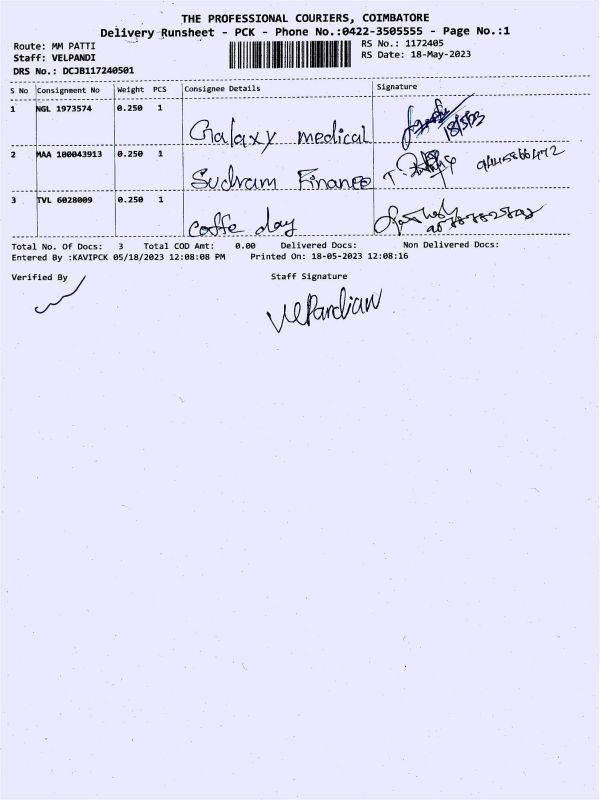 THE PROFESSIONAL COURIERS, COIMBATORE
Delivery Runsheet - PCK - Phone No.:0422-3505555 - Page No.:1
Route: MM PATTI
Staff: VELPANDI
DRS No.: DCJB117240501
RS No.: 1172405
RS Date: 18-May-2023
S No Consignment No Weight PCS Consignee Details Signature
1 NGL 1973574 0.250 1 Galaxy medical 18/5/23
2 MAA 100043913 0.250 1 Sudram Finance
3 TVL 6028009 0.250 1 coffe day
Total No. Of Docs: 3 Total COD Amt: 0.00 Delivered Docs: Non Delivered Docs:
Entered By :KAVIPCK 05/18/2023 12:08:08 PM Printed On: 18-05-2023 12:08:16
Verified By Staff Signature
VelPandian